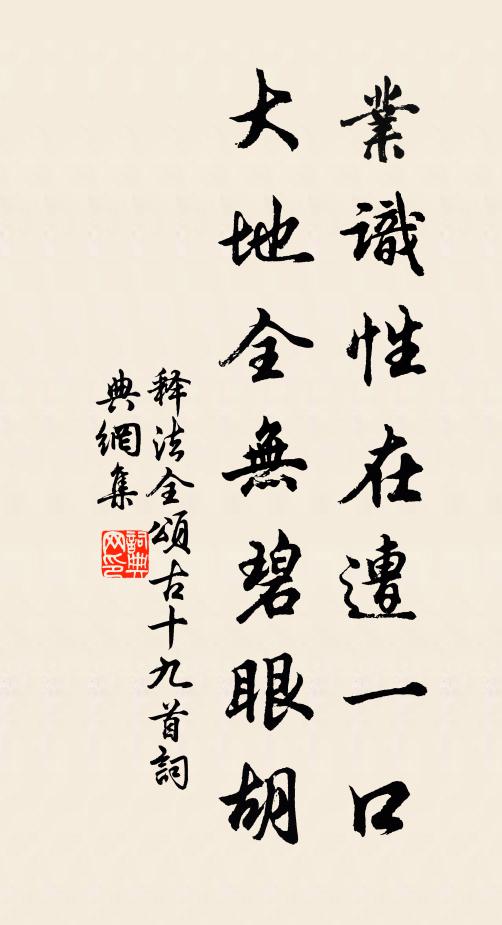 業識性在遭一口
大地全無碧眼胡
释法全頌古十九首詞
典網集
詞典网印